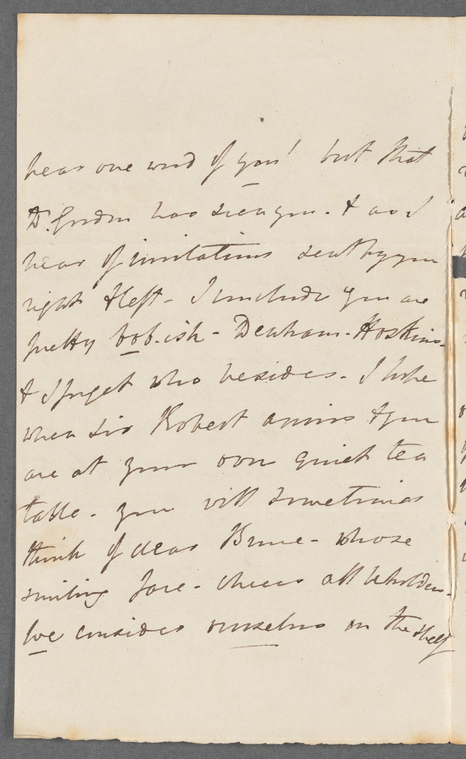 hear one word of you! but that
Dr. Gordon has seen you. & as I
hear of invitations sent by you
right & left - I conclude you are
pretty bob-ish - Denham - Hoskins -
& I forget who besides - I hope
when Sir Robert arrives & you
are at your own quiet tea
table - you will sometimes
think of dear Brune - whose
smiling face - cheers all beholders -
We consider ourselves on the shelf